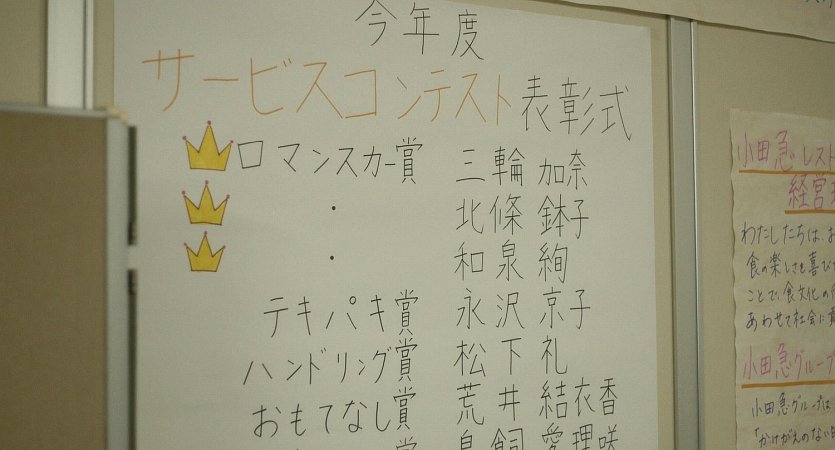 今年度
サービスコンテスト表彰式
ロマンスカー賞 三輪 加奈
・ 北條 鉢子
・ 和泉 絢
テキパキ賞 永沢 京子
ハンドリング賞 松下 礼
おもてなし賞 荒井 結衣香
賞 鳥飼 愛理咲
小田急レスト
経営
わたしたちは、お
食の楽しさを喜び
ことで、食文化の
あわせて社会に貢
小田急グループ
小田急グループは
「かけがえのない